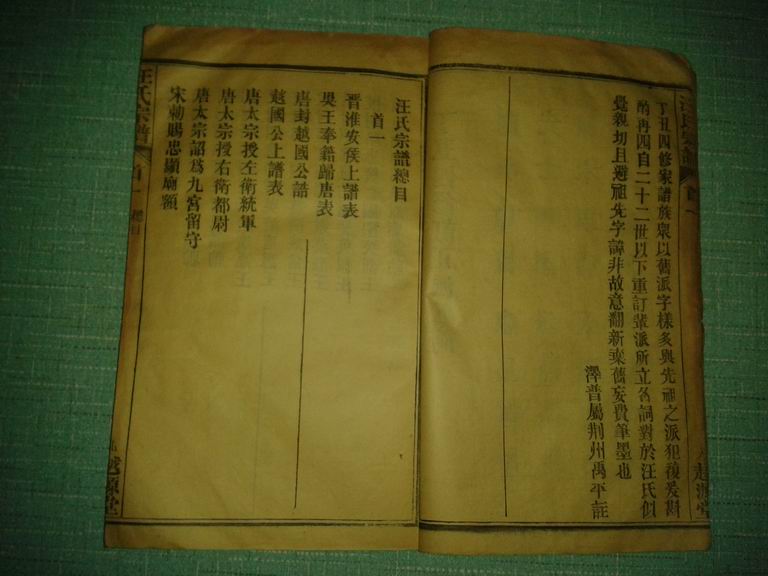 汪氏宗譜
首一
丁丑四修家譜族衆以舊派字樣多與先祖之派犯複爰斟
酌再四自二十二世以下重訂輩派所立各詞對於汪氏似
覺親切且避祖先字諱非故意翻新棄舊妄費筆墨也
澤普屬荆州禹平註
汪氏宗譜總目
首一
晋淮安侯上譜表
吳王奉籍歸唐表
唐封越國公誥
越國公上譜表
唐太宗授左衛統軍
唐太宗授右衛都尉
唐太宗詔爲九宮留守
宋勅賜忠顯廟額
汪氏宗譜
首一
總目
越源堂